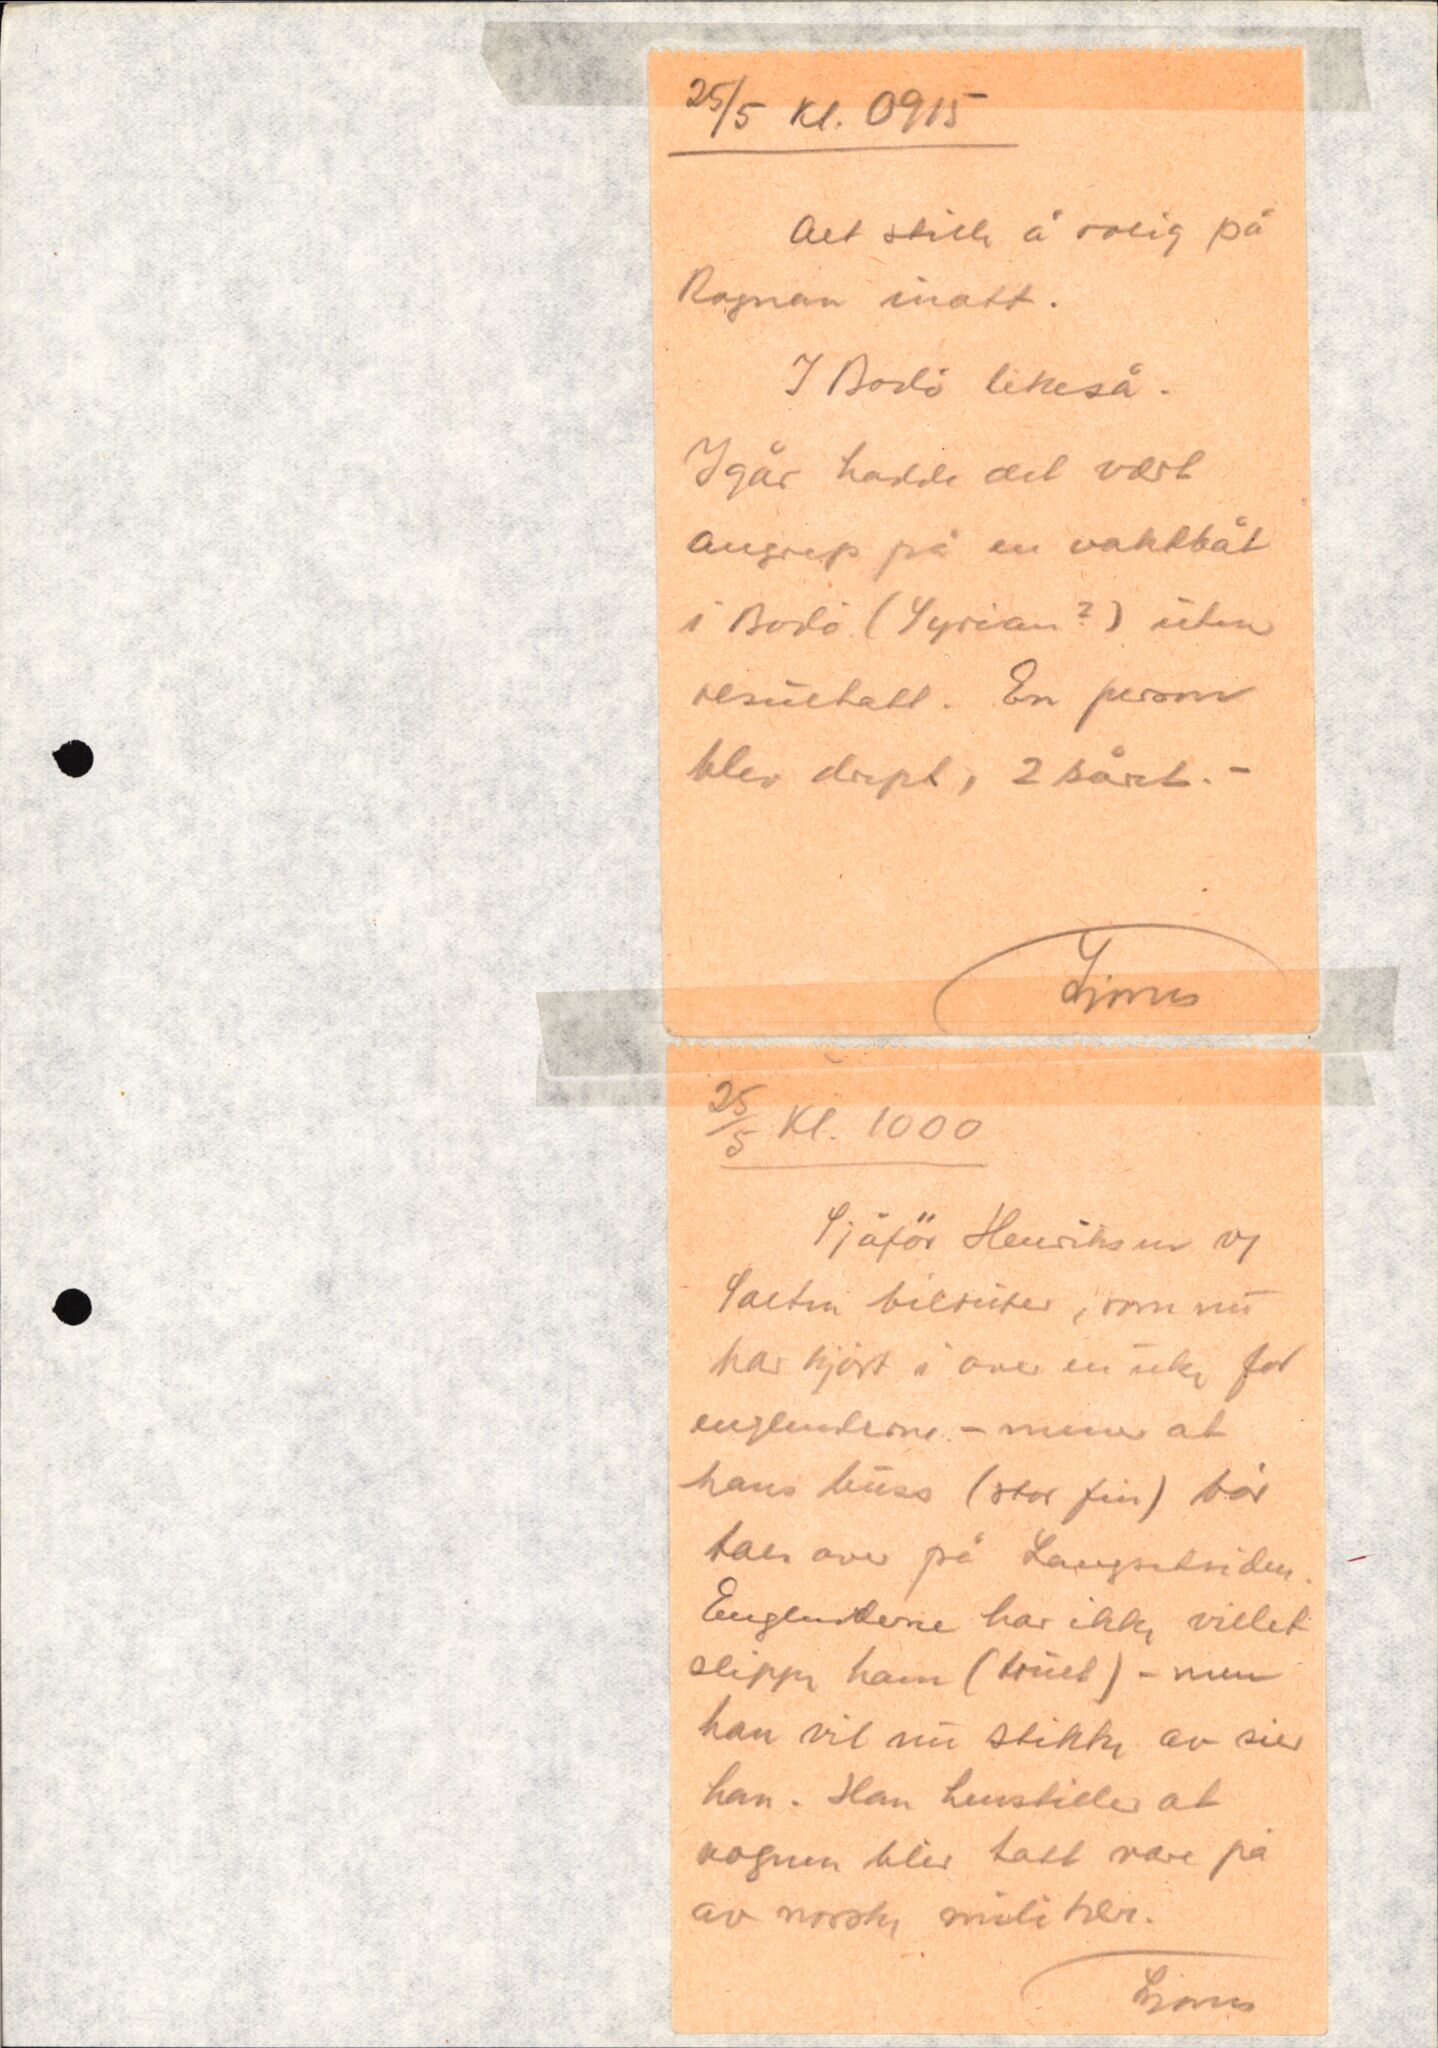 25/5 Kl. 0915
Alt stille å rolig på
Rognan inatt.
I Bodö likeså.
Igår hadde det vært
angrep på en vaktbåt
i Bodö (Syrian?) uten
resultatt. En person
blev drept, 2 såret. -
25/5 Kl. 1000
Sjåför Henriksen v/
Salten bilruter, som nu
har kjört i over en uke for
englenderne - mener at
hans buss (stor fin) bör
taes over på Langsetsiden.
Englenderne har ikke villet
slippe ham (truet) - men
han vil nu stikke av sier
han. Han henstiller at
vognen blir tatt vare på
av norske militær.